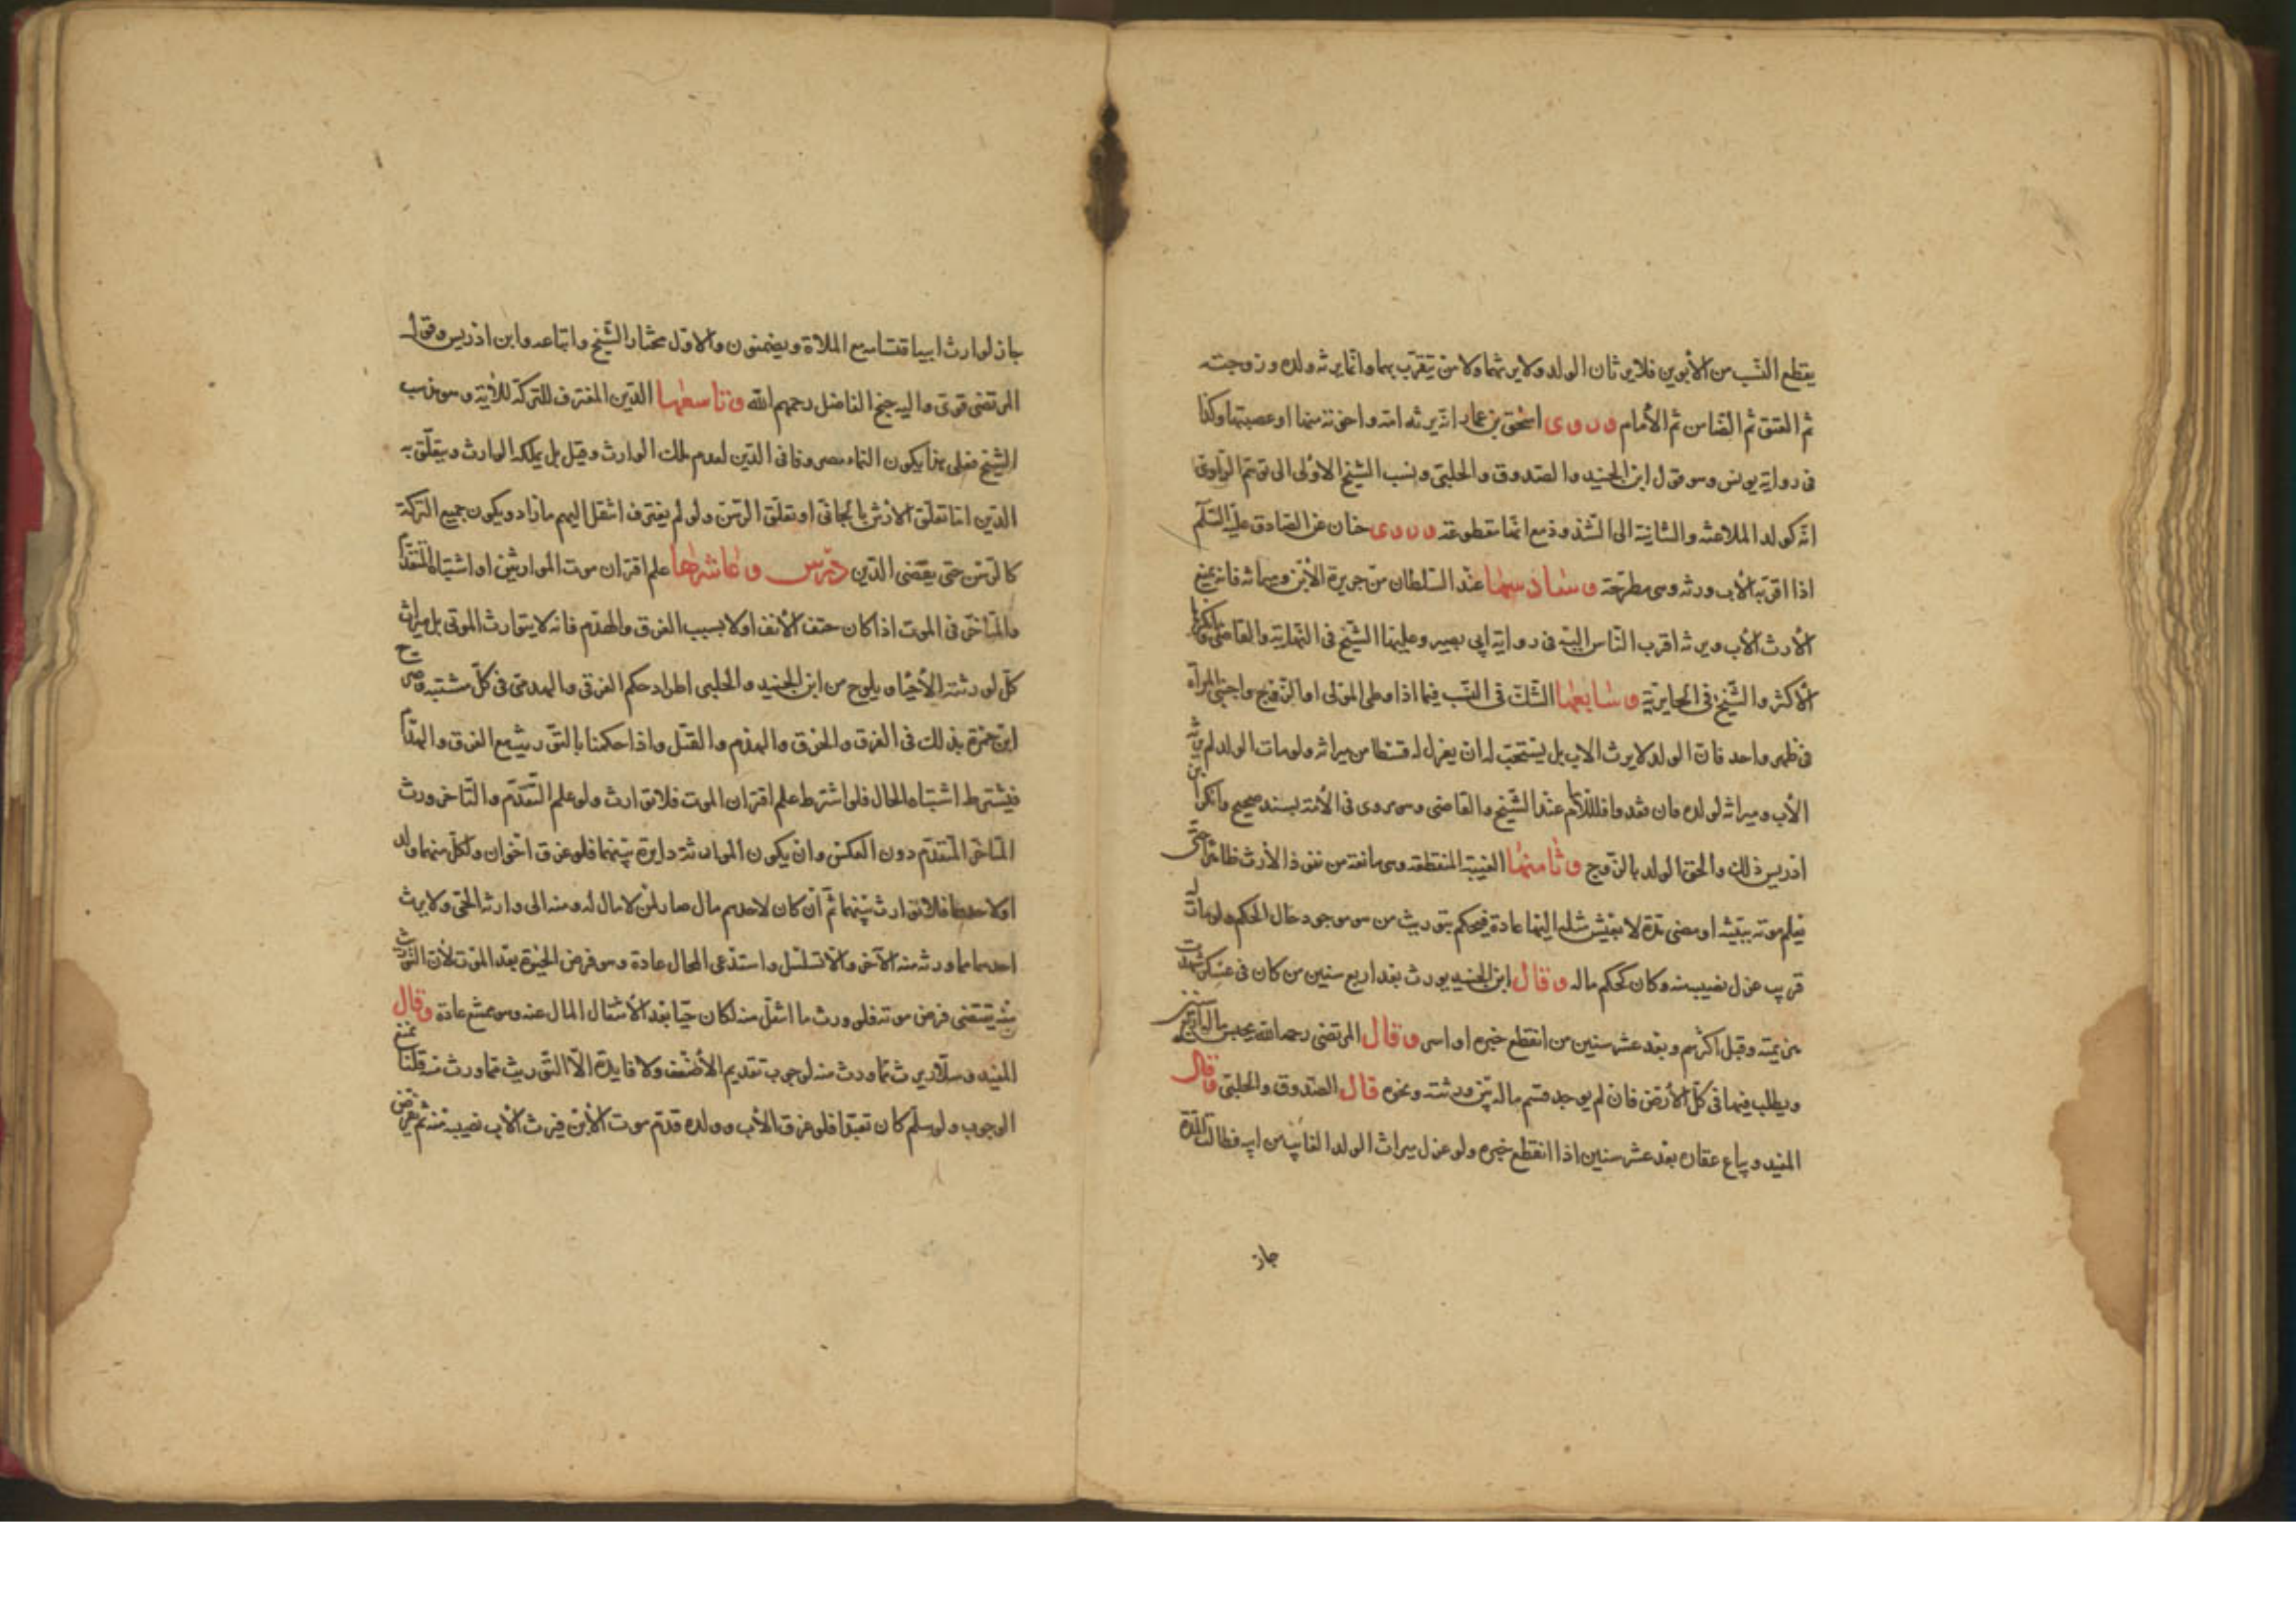 يقطع النسب من الأبوين فلا يرثان الولد ولا يرثهما ولا من يتقرب بهما وانما يرثه ولده وزوجته
ثم المعتق ثم الضامن ثم الأمام وروى اسحق بن عمار انه يرثه امه واخوته منها او عصبتها وكذا
فى رواية يونس وهو قول ابن الجنيد والصدوق والحلبى ونسب الشيخ الاولى الى توهم الراوى
انه كولد الملاعنة والثانية الى الشذوذ مع انها مقطوعة وروى حنان عن الصادق عليه السلم
اذا اقر به الأب ورثه وهى مطرحة وسادسها عند السلطان من جريرة الأبن وميراثه فانه يمنع
الأرث الأب ويرثه اقرب الناس اليه فى رواية ابى بصير وعليها الشيخ فى النهاية والقاضى وانكرها
الأكثر والشيخ فى الحايرية وسابعها الشك فى النسب فيما اذا وطى المولى او الزوج واجنبى المرأة
فى طهر واحد فان الولد لا يرث الاب بل يستحب له ان يعزل له قسطا من ميراثه ولو مات الولد لم يرثه
الأب وميراثه لولده فان فقدوا فللأم عند الشيخ والقاضى وهو مروى فى الأمة بسند صحيح وانكر ابن
ادريس ذلك والحق الولد بالزوج وثامنها الغيبة المنقطعة وهى مانعة من نفوذ الأرث ظاهرا حتى
يعلم موته ببينة او مضى مدة لا يعيش مثله اليها عادة فيحكم بتوريث من هو موجود حال الحكم ولو مات له
قريب عزل نصيبه منه وكان كحكم ماله وقال ابن الجنيد يورث بعد اربع سنين من كان فى عسكر شهدت
هزيمته وقتل اكثرهم وبعد عشر سنين من انقطع خبره او اسر وقال المرتضى رحمه الله يحبس ماله اربع سنين
ويطلب فيها فى كل الأرض فان لم يوجد قسم ماله بين ورثته ونحوه قال الصدوق والحلبى وقال
المفيد ويباع عقاره بعد عشر سنين اذا انقطع خبره ولو عزل ميراث الولد الغايب من ابيه فطالت المدة
جاز
جاز لوارث ابيه اقتسامه مع الملاة ويضمنون والاول مختار الشيخ واتباعه وابن ادريس وقول
المرتضى قوى واليه جنح الفاضل رحمهم الله وتاسعها الدين المغترف للتركة للأية وهو مذهب
الشيخ فعلى هذا يكون النماء مصروفا فى الدين لعدم ملك الوارث وقيل بل يملكه الوارث ويتعلق به
الدين اما تعلق الارش بالجانى او تعلق الرهن ولو لم يغترف انتقل اليهم ما زاد ويكون جميع التركة
كالرهن حتى يقضى الدين درس وعاشرها علم اقتران موت المتوارثين او اشتباه المتقدم
والمتأخر فى الموت اذا كان حتف الأنف او لا بسبب الغرق والهدم فانه لا يتوارث الموتى بل ميراث
كل لورثته الأحياء ويلوح من ابن الجنيد والحلبى اطراد حكم الغرقى والهدمى فى كل مشتبه وصرح
ابن حمزة بذلك فى الغرق والحرق والهدم والقتل واذا حكمنا بالتوريث مع الغرق والهدم
فيشترط اشتباه الحال فلو اشترط علم اقتران الموت فلا توارث ولو علم التقدم والتاخر ورث
المتاخر المتقدم دون العكس وان يكون الموارثة دايرة بينهما فلو غرق اخوان ولكل منهما ولد
او لاحدهما فلا توارث بينهما ثم ان كان لاحدهم مال صار لمن لا مال له ومنه الى وارثه الحى ولا يرث
احدهما مما ورث منه الآخر والا تسلسل واستدعى المحال عادة وهو فرض الحيوة بعد الموت لأن التوريث
منه يقتضى فرض موته فلو ورث ما انتقل منه لكان حيا بعد الأنتقال المال عنه وهو ممتنع عادة وقال
المفيد وسلار يرث مما ورث منه لوجوب تقديم الأضعف ولا فايدة الا التوريث مما ورث منه قلنا نمنع
الوجوب ولو سلم كان تعبدا فلو غرق الأب وولده قدم موت الأبن فيرث الأب نصيبه منه ثم يفرض